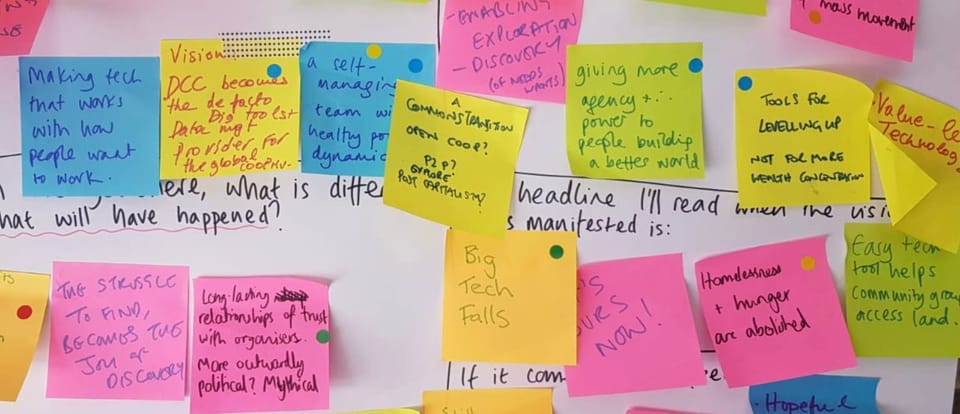 mass movement
- ENABLING
EXPLORATION
- DISCOVERY
(OF NEEDS
WANTS)
Making tech
that works
with how
people want
to work.
Vision
DCC becomes
the defacto
Dig toolset
Data mgt
Provider for
the global
a self-
managin
team wi
healthy po
dynamic
A
COMMONS TRANSITION
OPEN COOP?
P2P?
POST CAPITALISM?
giving more
agency +
power to
people building
a better world
TOOLS FOR
LEVELLING UP
NOT FOR MORE
WEALTH CONCENTRATION
Value-le
Technolog
ere, what is differ
hat will have happened?
headline I'll read when the visi
s manifested is:
THE STRUGGLE
TO FIND,
BECOMES THE
JOY OF
DISCOVERY
Long-lasting
relationships of trust
with organisers.
More outwardly
political? Mythical
Big
Tech
Falls
OURS
NOW!
Homelessness
+ hunger
are abolished
Easy tech
tool helps
community grou
access land.
If it com
Hopeful